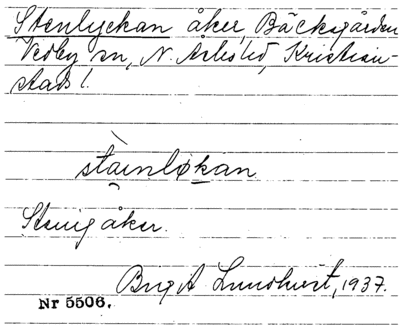 Stenlyckan åker, Bäcksgården
Vedby sn, N. Åsbo hd, Kristian-
stads l.
stainløkan
Stenig åker.
Birgit Lundkvist, 1937.
Nr 5506.